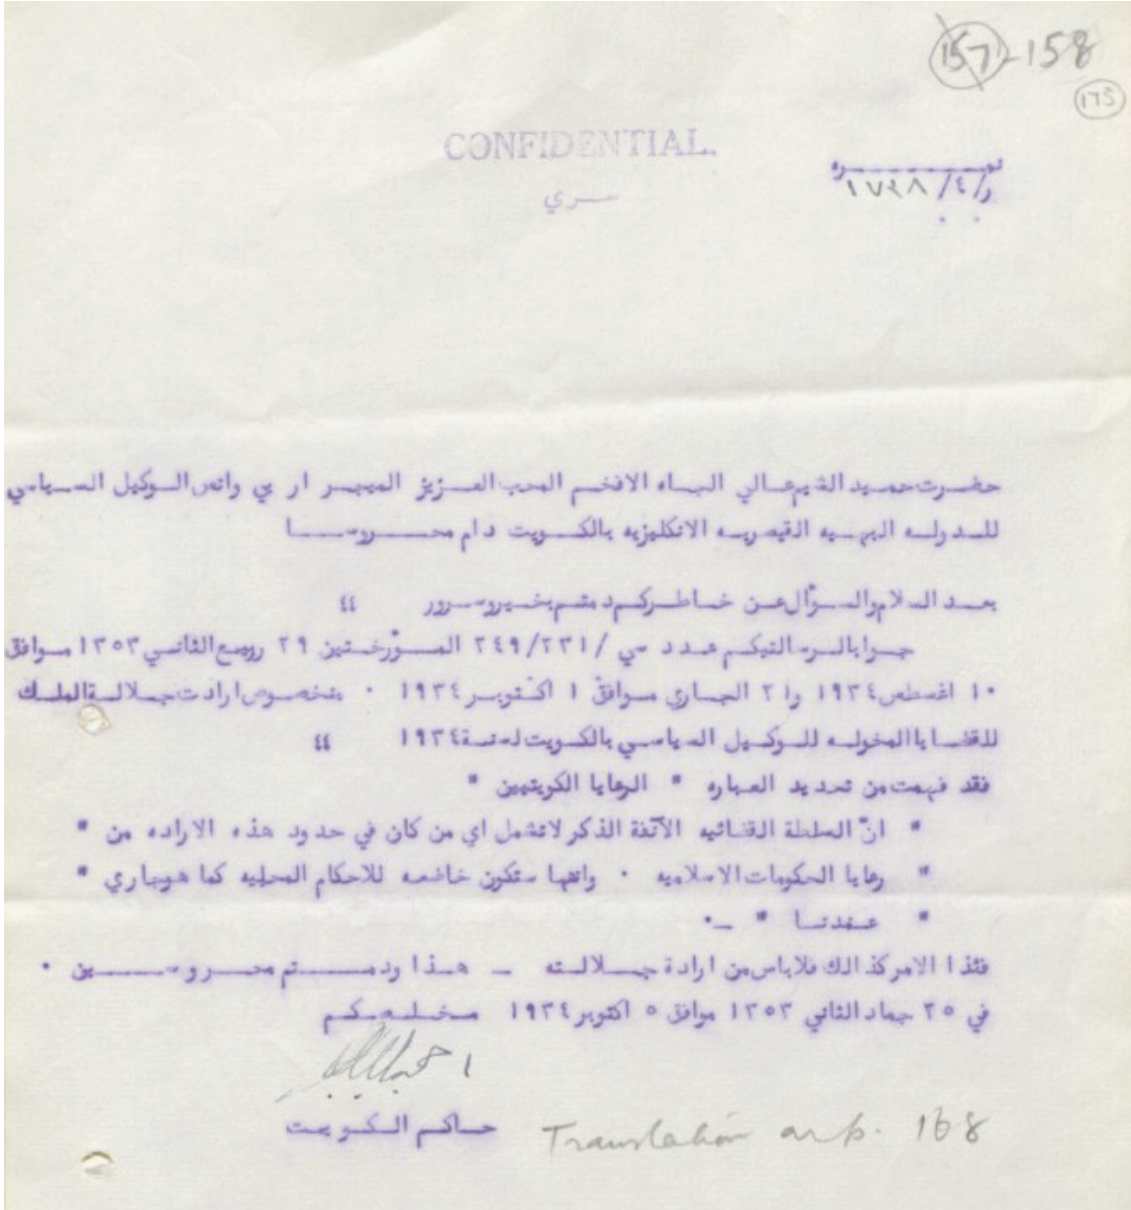 157-158
173
CONFIDENTIAL.
سري
نمره
ر/٤/١٧٣٨
حضرت حميد الشيم عالي الجاه الافخم المحب العزيز الميجر ار بي واتس الوكيل السياسي
للدوله البهيه القيصريه الانكليزيه بالكويت دام محروسا
بعد السلام والسؤال عن خاطركم دمتم بخير وسرور "
جوابا لرسالتيكم عدد سي /٢٤٩/٢٣١ المؤرختين ٢٩ ربيع الثاني ١٣٥٣ موافق
١٠ اغسطس ١٩٣٤ و٢١ الجاري موافق ١ اكتوبر ١٩٣٤ ٠ بخصوص ارادت جلالة الملك
للقضايا المخوله للوكيل السياسي بالكويت لسنة ١٩٣٤ "
فقد فهمت من تحديد العباره " الرعايا الكويتيين "
" انّ السلطة القضائيه الآنفة الذكر لاتشمل اي من كان في حدود هذه الاراده من "
" رعايا الحكومات الاسلاميه ٠ وانها ستكون خاضعه للاحكام المحليه كما هوجاري "
" عندنا " _٠
فئذا الامر كذالك فلاباس من ارادة جلالته _ هذا ودمتم محروسين ٠
في ٢٥ جماد الثاني ١٣٥٣ موافق ٥ اكتوبر ١٩٣٤ مخلصكم
حاكم الكويت
Translation on p. 168